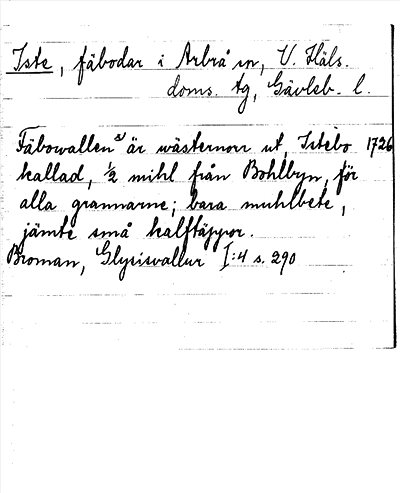 Iste, fäbodar i Arbrå sn, V. Häls.
doms. tg, Gävleb. l.
Fäbowallen a) är wästernorr ut, Istebo 1726
kallad, ½ mihl från Bohlbyn, för
alla grannarne; bara muhlbete,
jämte små kalftäppor.
Broman, Glysisvallur I:4 s. 290